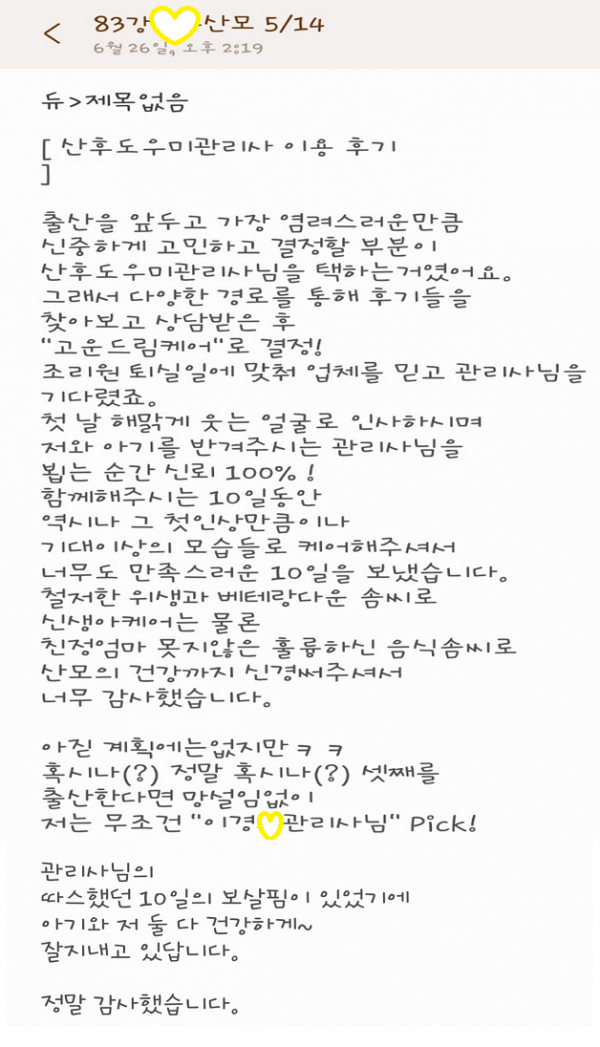 83강 산모 5/14
6월 26일, 오후 2:19
듀>제목없음
[ 산후도우미관리사 이용 후기
]
출산을 앞두고 가장 염려스러운만큼
신중하게 고민하고 결정할 부분이
산후도우미관리사님을 택하는거였어요.
그래서 다양한 경로를 통해 후기들을
찾아보고 상담받은 후
"고운드림케어"로 결정!
조리원 퇴실일에 맞춰 업체를 믿고 관리사님을
기다렸죠.
첫 날 해맑게 웃는 얼굴로 인사하시며
저와 아기를 반겨주시는 관리사님을
뵙는 순간 신뢰 100% !
함께해주시는 10일동안
역시나 그 첫인상만큼이나
기대이상의 모습들로 케어해주셔서
너무도 만족스러운 10일을 보냈습니다.
철저한 위생과 베테랑다운 솜씨로
신생아케어는 물론
친정엄마 못지않은 훌륭하신 음식솜씨로
산모의 건강까지 신경써주셔서
너무 감사했습니다.
아짇 계획에는없지만 ㅋ ㅋ
혹시나(?) 정말 혹시나(?) 셋째를
출산한다면 망설임없이
저는 무조건 "이경 관리사님" Pick!
관리사님의
따스했던 10일의 보살핌이 있었기에
아기와 저 둘 다 건강하게~
잘지내고 있답니다.
정말 감사했습니다.